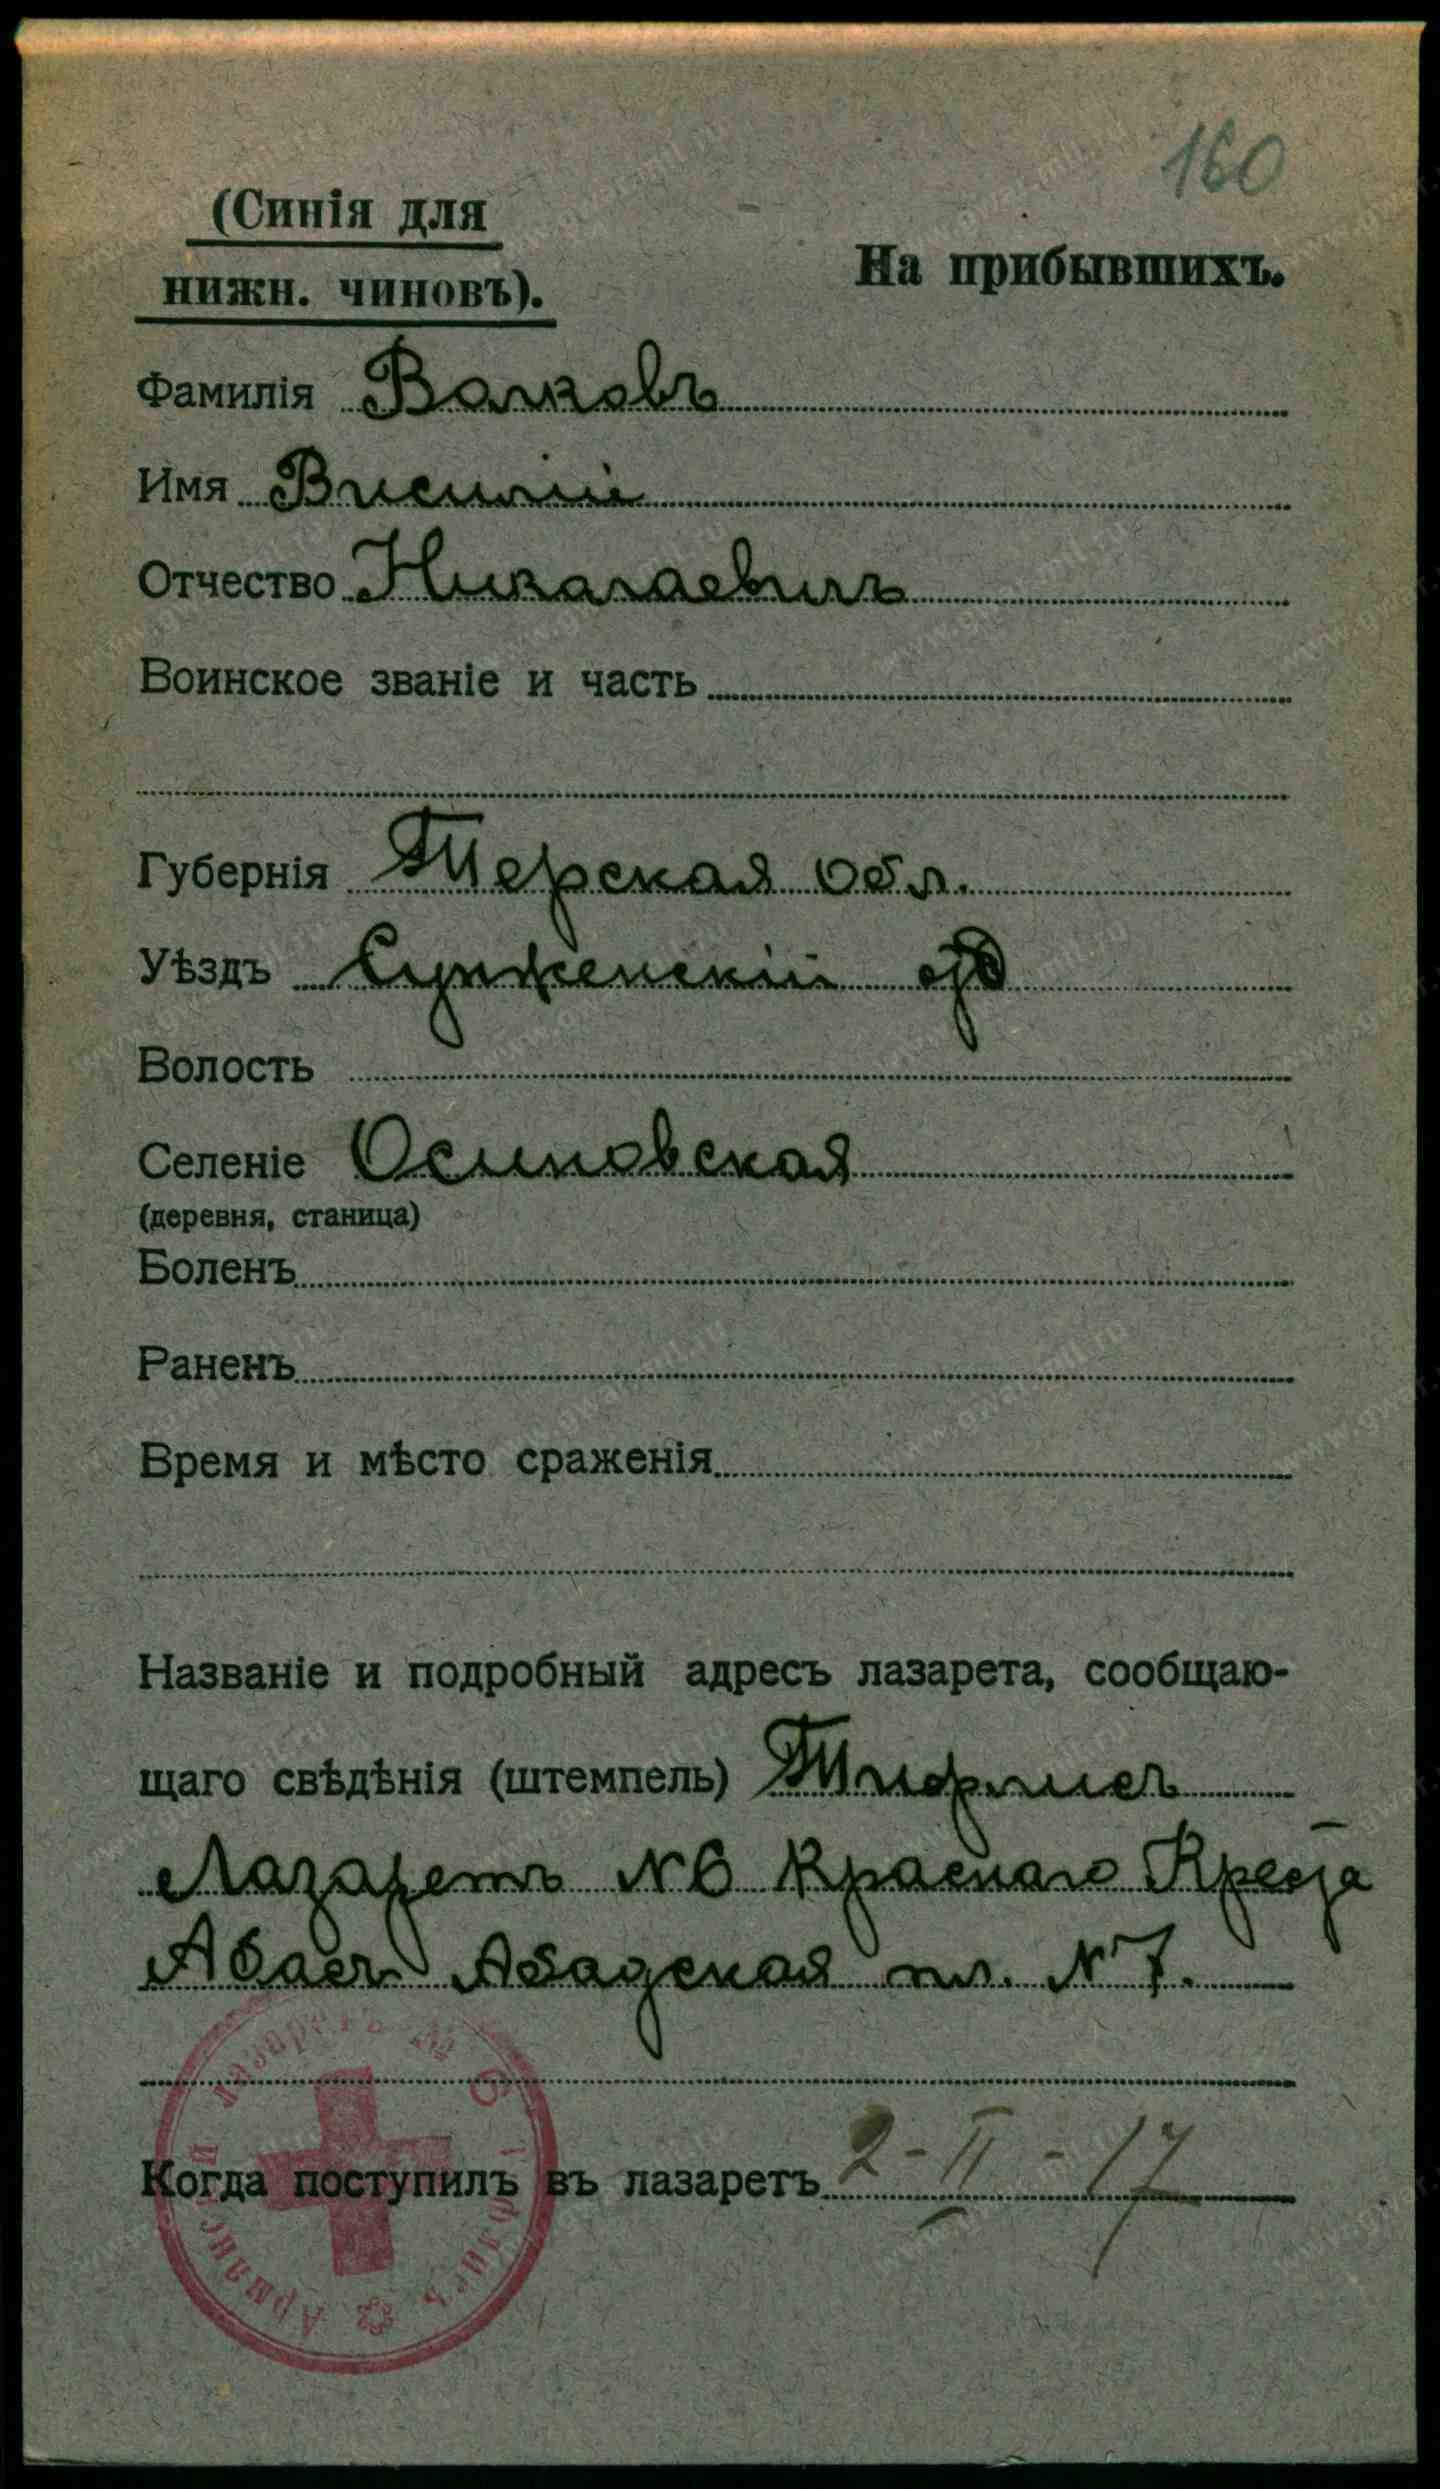 160
(Синія для
нижн. чиновъ).
На прибывшихъ.
Фамилія Волковъ
Имя Василій
Отчество Николаевичъ
Воинское званіе и часть
Губернія Терская обл.
Уѣздъ Сунженскій
Волость
Селеніе Осиновская
(деревня, станица)
Боленъ
Раненъ
Время и мѣсто сраженія
Названіе и подробный адресъ лазарета, сообщаю-
щаго свѣдѣнія (штемпель) Тифлисъ
Лазаретъ №6 Краснаго Креста
Абасъ Абадская пл. №7.
Когда поступилъ въ лазаретъ 2-II-17
Армянскій лазаретъ № 6 Тифлисъ
www.gwar.mil.ru